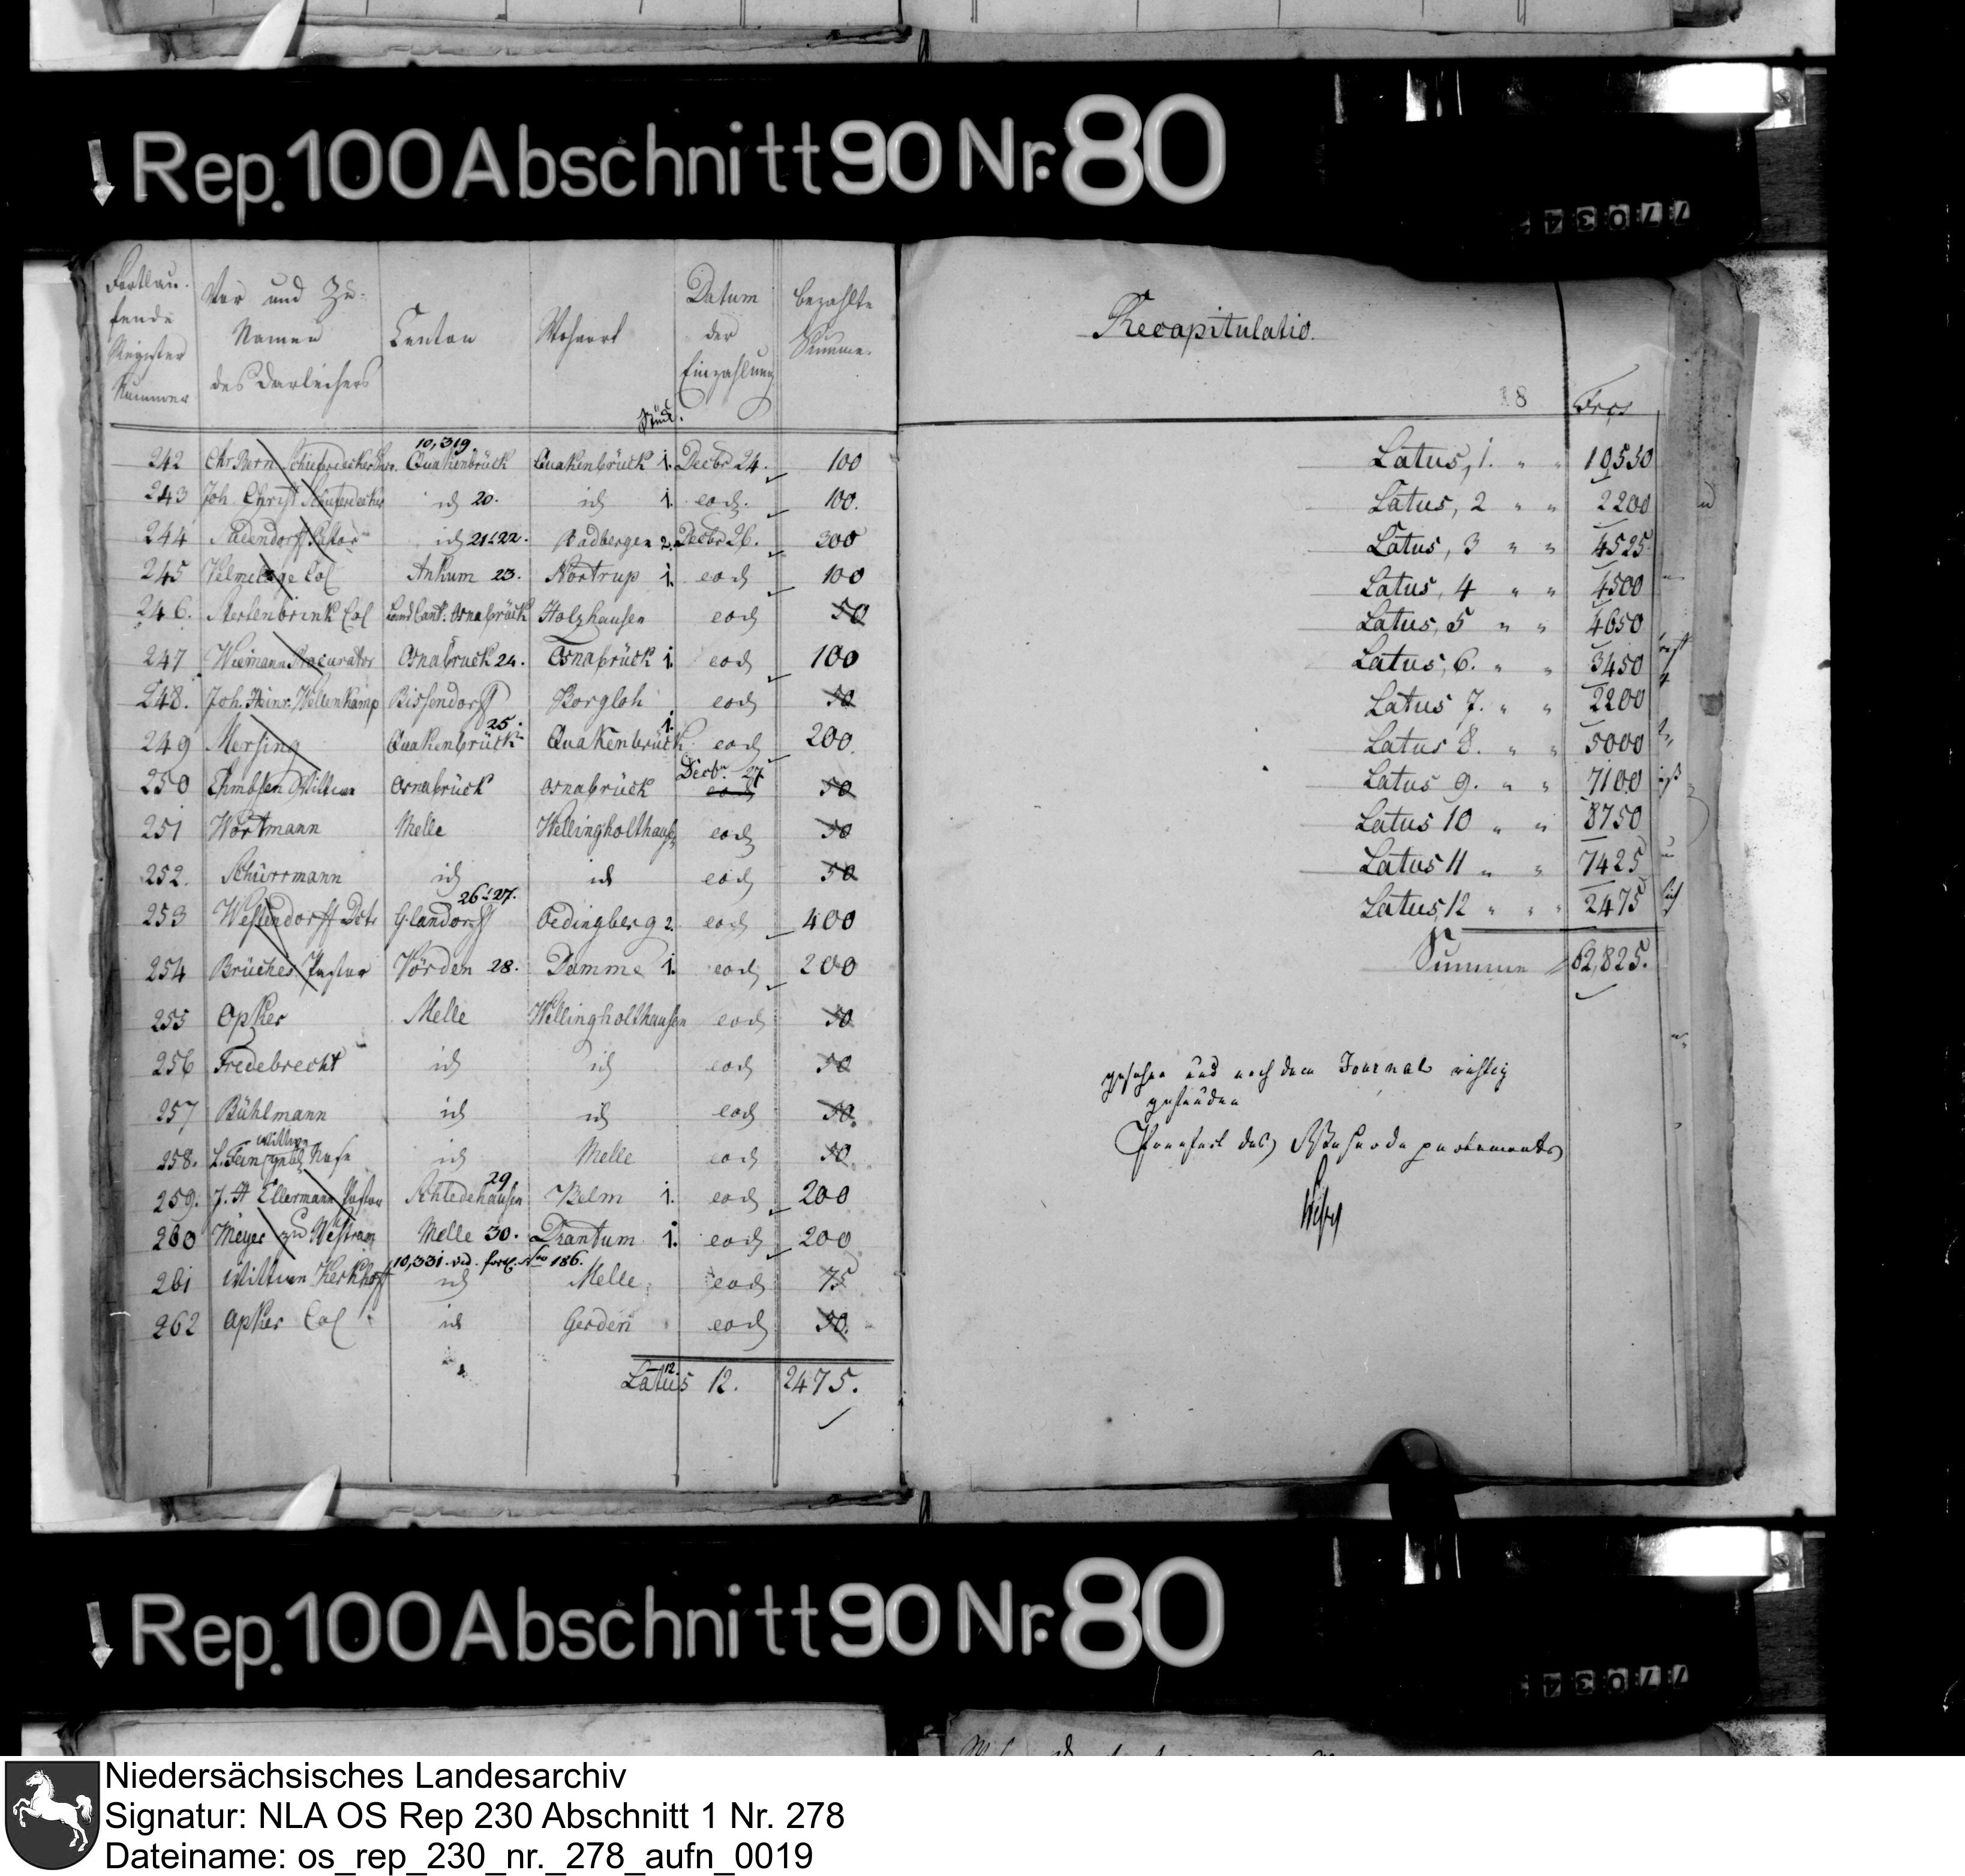 Rep. 100 Abschnitt 90 Nr. 80
77034
Fortlau-
fende
Register
Nummer
Vor und Zu-
Namen
des Darleihers
Canton
Wohnort
Datum
der
Einzahlung
bezahlte
Summe.
Stück.
242 Chr Bern Schieferdecker 10,319. Quakenbrück Quakenbrück 1. Decbr 24. 100
243 Joh. Christ Schieferdecker id 20. id 1. eod. 100.
244 Sudendorff Pastor id 21 & 22. Badbergen 2. Decbr 26. 300
245 Velmelage Col Ankum 23. Nortrup 1. eod 100
246. Mertenbrink Col Land Cant. Osnabrück Holzhausen eod 50
247 Wiemann Procurator Osnabrück 24. Osnabrück 1. eod 100
248. Joh. Heinr. Wellenkamp Bissendorff Borgloh eod 50
249 Mersing Quakenbrück 25. Quakenbrück 1. eod 200
250 Ehmbsen Wittwe Osnabrück Osnabrück Decbr. 27. eod 50
251 Wortmann Melle Wellingholthausen eod 50
252. Schürrmann id id eod 50
253 Westendorff Glandorff 26 & 27. Oedingberg 2. eod 400
254 Brüches Pastor Vörden 28. Damme 1. eod 200
255 Apker Melle Wellingholthausen eod 50
256 Fredebrecht id id eod 50
257 Bühlmann id id eod 50.
258. Wittwe id Melle eod 50.
259. J. H Ellermann Pastor Schledehausen 29 Belm 1. eod 200
260 Meyer zu Westram Melle 30. Drantum 1. eod 200
10,331. vid. 186.
261 Wittwe Kerkhoff id Melle eod 75
262 Apker Col id Gerden eod 50.
Latus 12. 2475.
Recapitulatio.
18
Frcs
Latus, 1. " " 10550
Latus, 2 " " 2200
Latus, 3 " " 4525
Latus, 4 " " 4500
Latus, 5 " " 4650
Latus, 6. " " 3450
Latus 7. " " 2200
Latus 8. " " 5000
Latus 9. " " 7100
Latus 10 " " 8750
Latus 11 " " 7425
Latus, 12 " " 2475
Summe 62,825.
gesehen und nach dem Journal richtig
gefunden
Praefect des Weserdepartements
Rep. 100 Abschnitt 90 Nr. 80
77034
Niedersächsisches Landesarchiv
Signatur: NLA OS Rep 230 Abschnitt 1 Nr. 278
Dateiname: os_rep_230_nr._278_aufn_0019